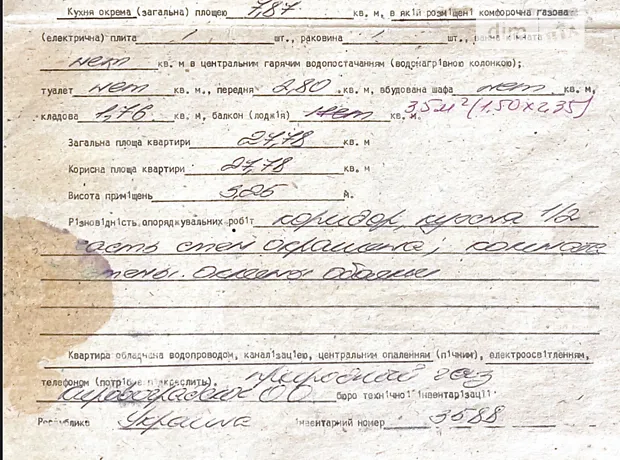 Кухня окрема (загальна) площею 7,87 кв. м, в якій розміщені комфорочна газова
(електрична) плита 1 шт., раковина 1 шт., ванна кімната
нет кв. м в центральним гарячим водопостачанням (водонагрівною колонкою);
туалет нет кв. м., передня 2,80 кв. м, вбудована шафа нет кв. м,
кладова 1,76 кв. м, балкон (лоджія) нет кв. м. 3,5 м² (1,50 х 2,35)
Загальна площа квартири 27,78 кв. м
Корисна площа квартири 27,78 кв. м
Висота приміщень 3,25 м.
Різновідність опоряджувальних робіт коридор, кухня 1/2
асть стен окрашена; комната
тены оклеены обоями
Квартира обладнана водопроводом, каналізацією, центральним опаленням (пічним), електроосвітленням,
телефоном (потрібне підкреслить). природный газ
бюро технічної інвентарізації
Республіка Украина Інвентарний номер 3588